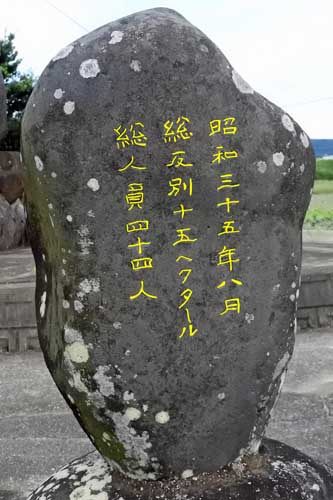 昭和三十五年八月
総反別十五ヘクタール
総人員四十四人